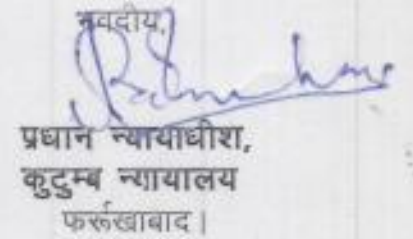 भवदीय,
प्रधान न्यायाधीश,
कुटुम्ब न्यायालय
फर्रूखाबाद।